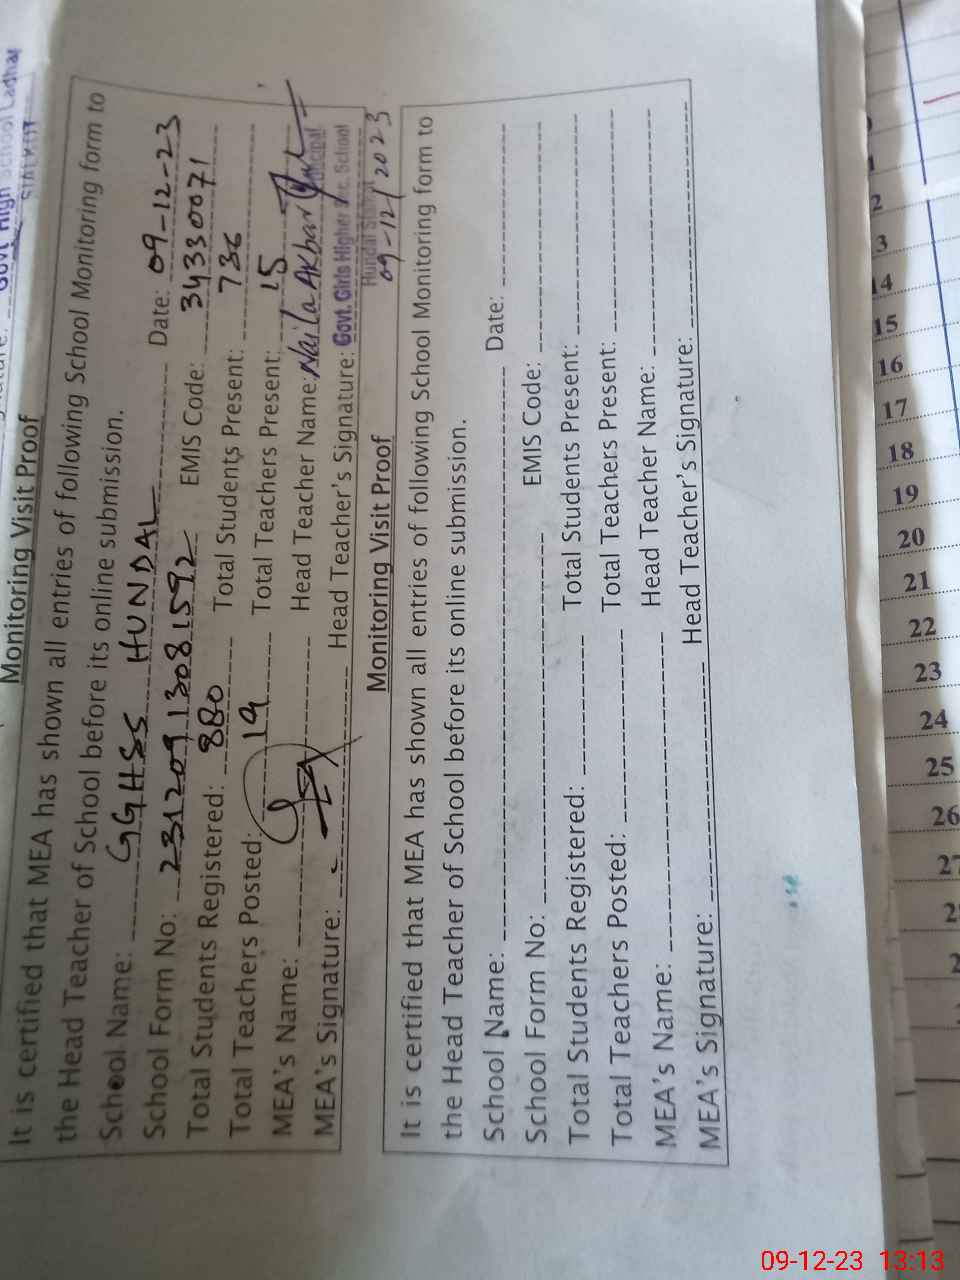 Govt High School Ladhar
Monitoring Visit Proof
It is certified that MEA has shown all entries of following School Monitoring form to
the Head Teacher of School before its online submission.
School Name: GGHSS HUNDAL Date: 09-12-23
School Form No: 231209130815 92 EMIS Code: 34330071
Total Students Registered: 880 Total Students Present: 736
Total Teachers Posted: 19 Total Teachers Present: 15
MEA's Name: Head Teacher Name: Naila Akbar
MEA's Signature: Head Teacher's Signature: Principal
Govt. Girls Higher Sec. School
Hundal Sialkot
09-12/2023
Monitoring Visit Proof
It is certified that MEA has shown all entries of following School Monitoring form to
the Head Teacher of School before its online submission.
School Name: Date:
School Form No: EMIS Code:
Total Students Registered: Total Students Present:
Total Teachers Posted: Total Teachers Present:
MEA's Name: Head Teacher Name:
MEA's Signature: Head Teacher's Signature:
2
3
14
15
16
17
18
19
20
21
22
23
24
25
26
27
09-12-23 13:13